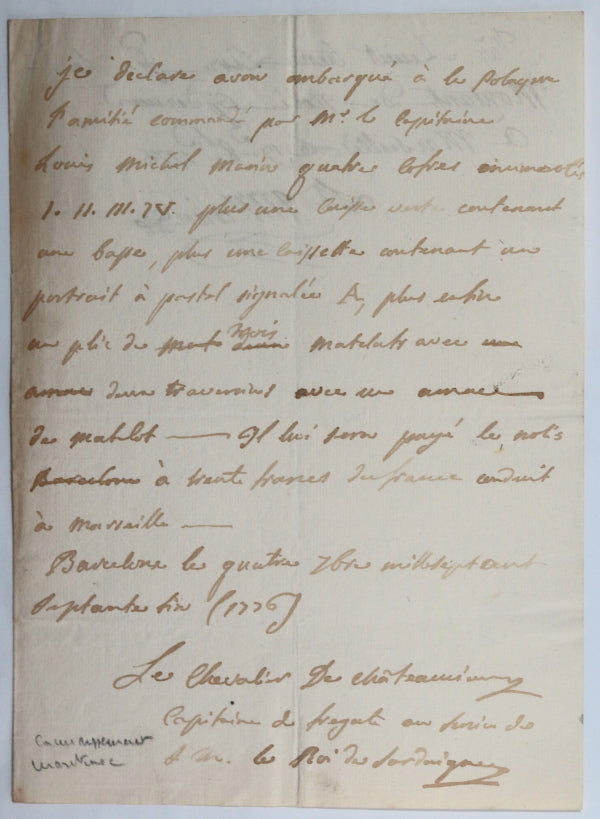 je déclare avoir embarqué à la Polaque
l'amitié commandé par Mr. le Capitaine
Louis Michel Marin quatre Cofres
I. II. III. IV. plus une Caisse verte contenant
une basse, plus une Caissette contenant un
portrait à pastel signalée A, plus enfin
un plic de trois matelats avec
deux traversins avec un amac
de matelot — Il lui sera payé le nolis
Barcelone à trente francs de france conduit
à Marseille —
Barcelone le quatre 7bre mille sept cent
septante six (1776)
Le Chevalier De
Capitaine de fregate au service de
S. M. le Roi de Sardaigne
Connaissement
maritime